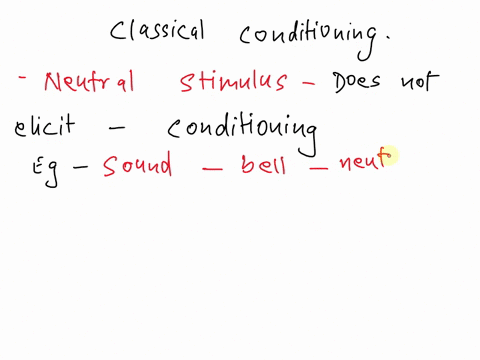 classical conditioning.
- Neutral stimulus - Does not
elicit - conditioning
Eg - sound - bell - neut